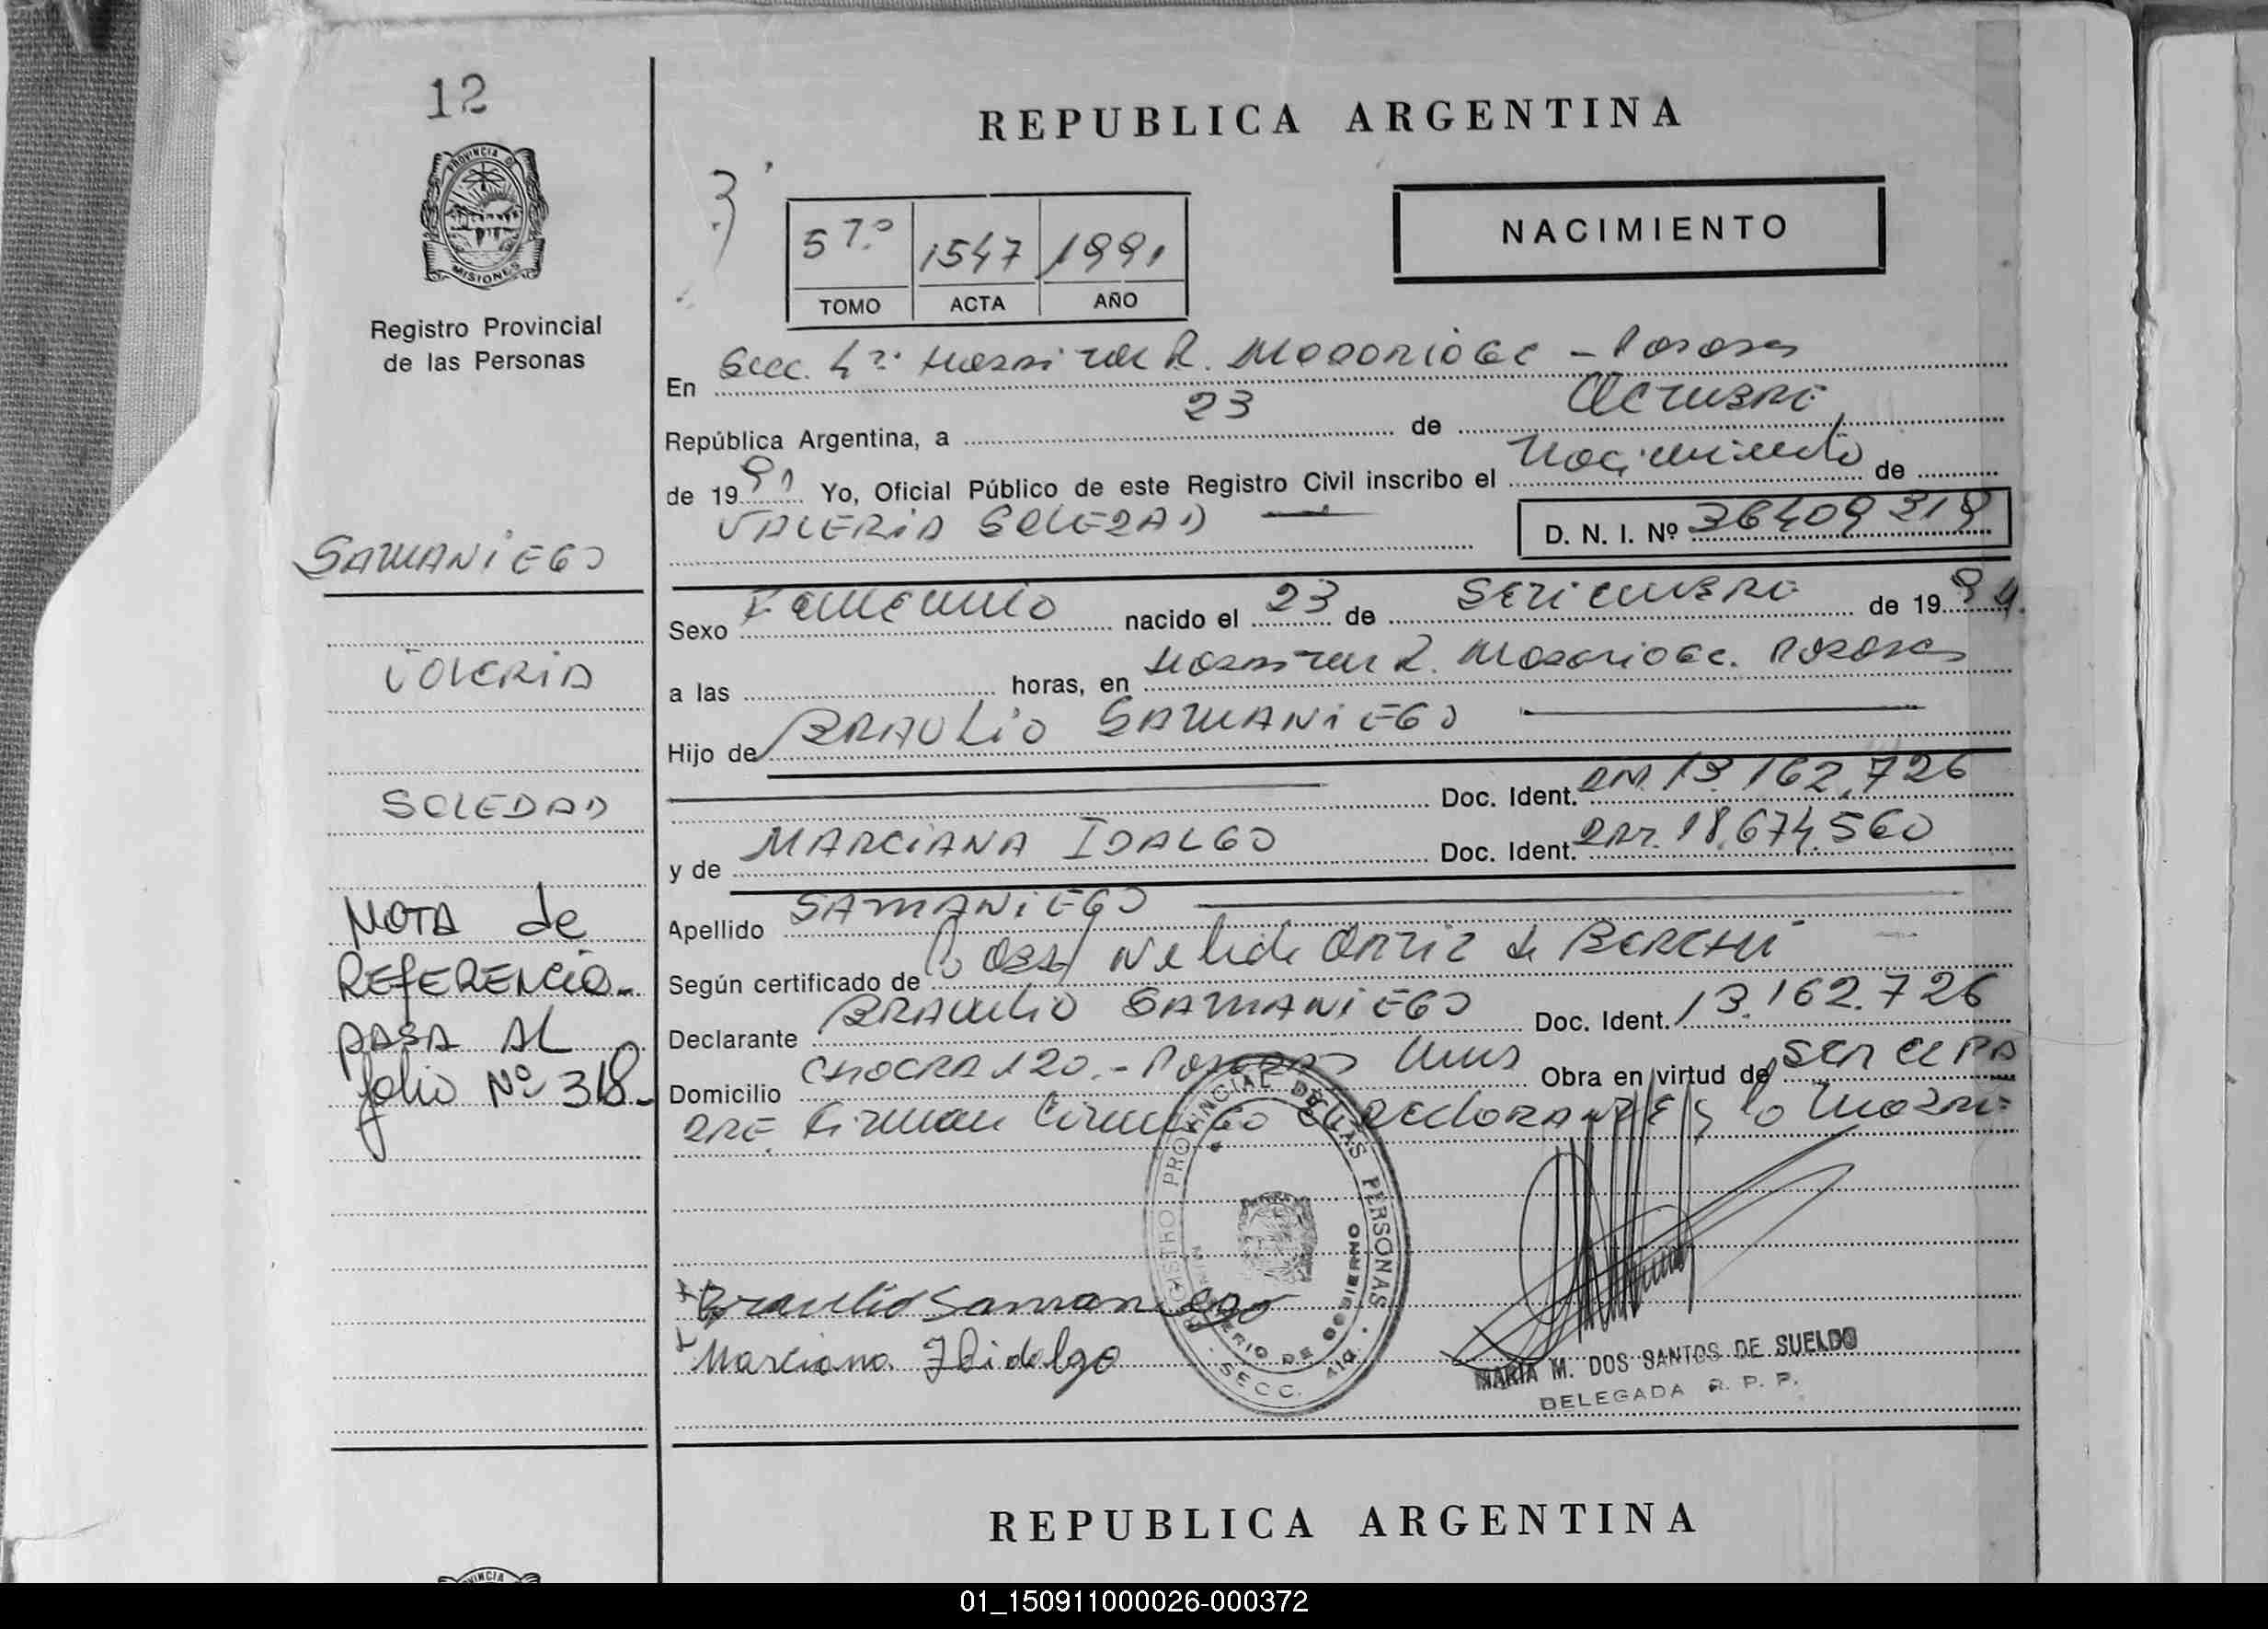 12
PROVINCIA DE
MISIONES
Registro Provincial
de las Personas
SAMANIEGO
VALERIA
SOLEDAD
NOTA de
REFERENCIA-
PASA AL
folio Nº 318-
REPUBLICA ARGENTINA
3
57.º 1547 1991
TOMO ACTA AÑO
NACIMIENTO
En Secc. 4ª. Hospital R. Madariaga - Posadas
República Argentina, a 23 de OCTUBRE
de 1991 Yo, Oficial Público de este Registro Civil inscribo el Nacimiento de
VALERIA SOLEDAD
D. N. I. Nº 36409319
Sexo Femenino nacido el 23 de SETIEMBRE de 1991.
a las horas, en Hospital R. Madariaga. Posadas
Hijo de BRAULIO SAMANIEGO
Doc. Ident. DNI. 13.162.726
y de MARCIANA IDALGO Doc. Ident. DNI. 18.674.560
Apellido SAMANIEGO
Según certificado de la Obst. Nelida Ortiz de
Declarante BRAULIO SAMANIEGO Doc. Ident. 13.162.726
Domicilio CHACRA 120.- Posadas Mnes Obra en virtud de SER EL PA
DRE Firman Conmigo el DECLARANTE y la Madre
Braulio Samaniego
Marciana Hidalgo
REGISTRO PROVINCIAL DE LAS PERSONAS
MINISTERIO DE GOBIERNO
SECC. 4ta.
MARIA M. DOS SANTOS DE SUELDO
DELEGADA R. P. P.
REPUBLICA ARGENTINA
PROVINCIA
01_150911000026-000372